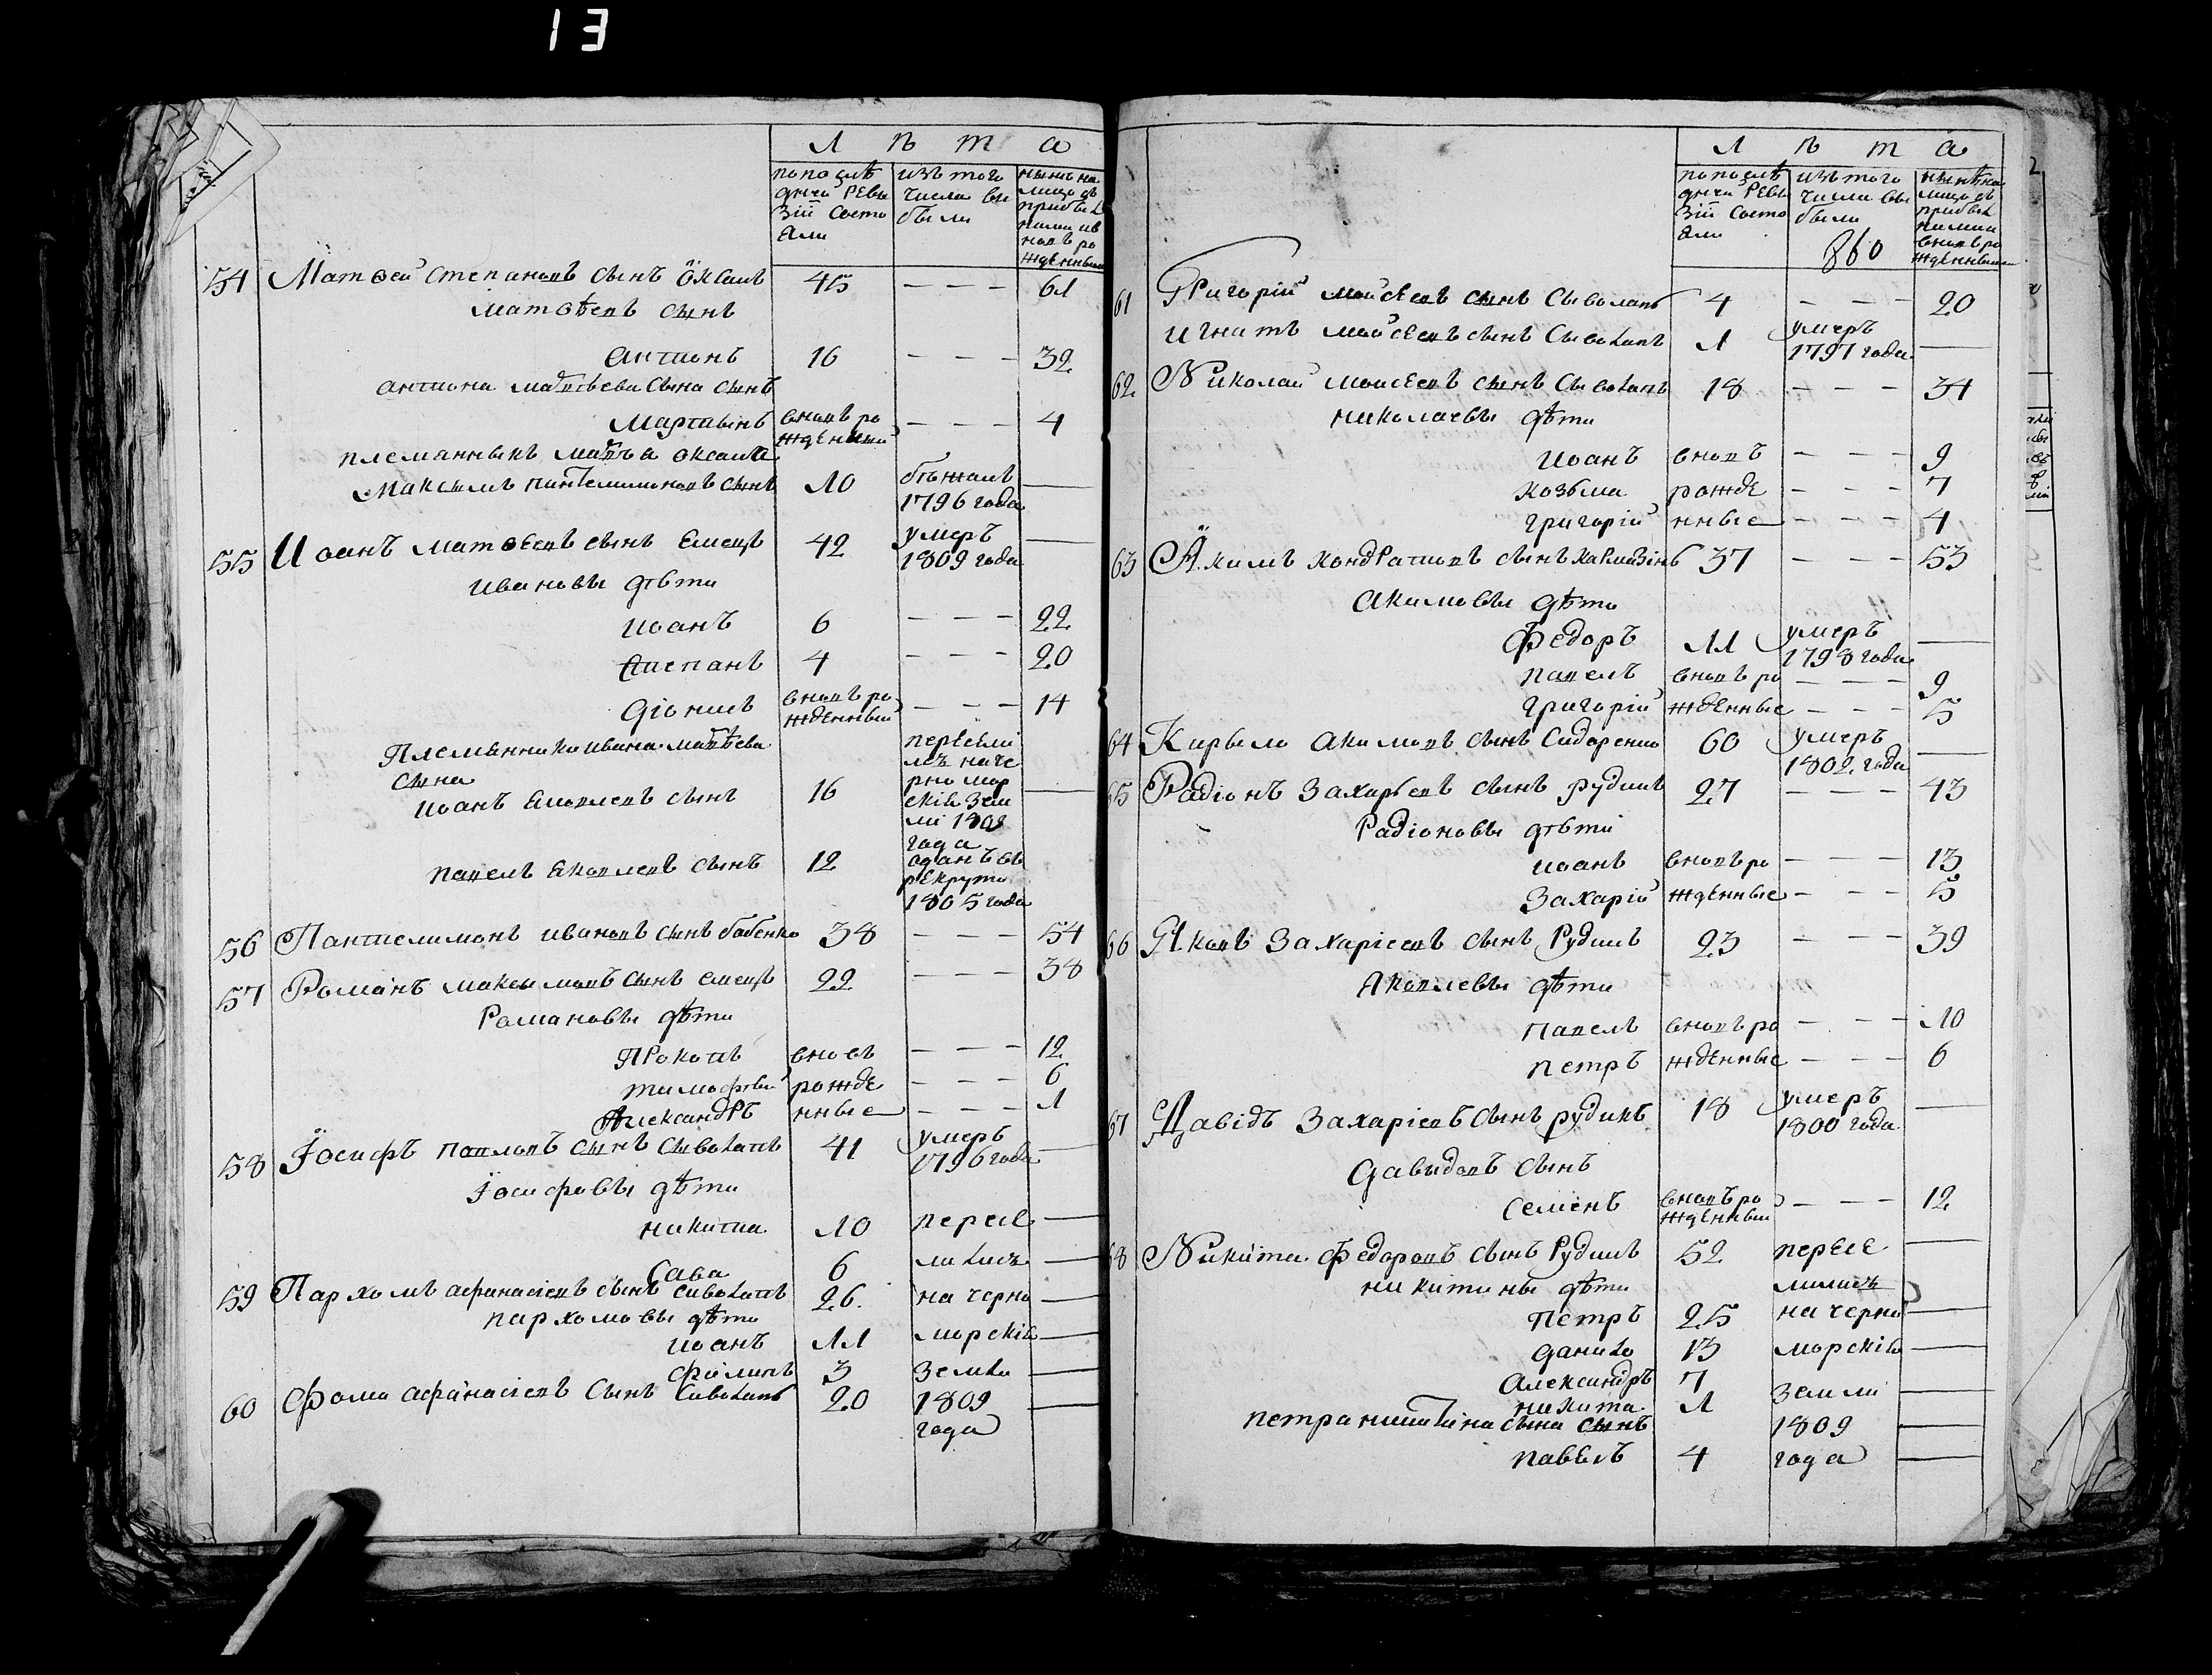 13
Л ѣ т а
по послѣ
дней РЕви
зіи состо
яли
изъ того
числа вы
были
нынѣ на
лицо съ
прибыл
ними и в
новь ро
жденными
54 Матѳей степановъ сынъ 45 — — — 61
матѳѣевъ сынъ
Антонъ 16 — — — 32
антона матвѣева сына сынъ
Мартынъ вновь ро — — — 4
жденный
племянныкъ
Максымъ пантелимоновъ сынъ 10 бѣжалъ —
1796 года
55 Иоанъ матѳеевъ сынъ Емецъ 42 умеръ —
1809 года
ивановы дѣти
иоанъ 6 — — — 22
Степанъ 4 — — — 20
Діонисъ вновь ро — — — 14
жденный
Племянники ивана матвѣева
сына
иоанъ Яковлевъ сынъ 16 переселі
лсъ на че
рно мор
скія Зем
лі 1809
года —
павелъ Яковлевъ сынъ 12 одданъ въ
рекруты
1805 года
56 Пантелимонъ ивановъ сынъ бабенко 38 — — — 54
57 Романъ максымовъ сынъ емецъ 22 — — — 38
Романовы дѣти
Прокопъ вновь — — — 12
тимофѣй рожде — — — 6
Александръ нные — — — 1
58 Іосифъ павловъ сынъ Сыволапъ 41 умеръ —
1796 года
Іосифовы дѣти
никита 10 пересе —
Сава 6 лились —
59 Пархомъ афанасіевъ сынъ Сиволапъ 26. на черно —
пархомовы дѣти
иоанъ 11 морскія —
филипъ 3 земли —
60 Фома афанасіевъ Сынъ Сиволапъ 20 1809 —
года
Л ѣ т а
по послѣ
дней РЕви
зіи состо
яли
изъ того
числа вы
были
860
нынѣ на
лицо съ
прибыл
ними и
вновь ро
жденными
61 Григорій мойсеевъ сынъ Сыволапъ 4 — — — 20
Игнатъ мойсеевъ сынъ Сыволапъ 1 умеръ
1797 года —
62. Николай моисеевъ сынъ Сыволапъ 18 — — — 34
николаевы дѣти
Иоанъ вновь — — — 9
козьма рожде — — — 7
григорій нные — — — 4
63 Акимъ кондратовъ сынъ 37 — — — 53
акимовы дѣти
Федоръ 11 умеръ —
1798 года
павелъ вновь ро — — — 9
григорій жденные — — — 5
64 Кирыло акимовъ сынъ Сидоренко 60 умеръ —
1802 года
65 Радіонъ Захарьевъ сынъ рудикъ 27 — — — 43
Радіоновы дѣти
иоанъ вновь ро — — — 13
Захарій жденные — — 5
66 Яковъ Захаріевъ сынъ Рудикъ 23 — — — 39
Яковлевы дѣти
павелъ вновь ро — — — 10
петръ жденные — — 6
67 Давідъ Захаріевъ сынъ рудикъ 18 умеръ —
1800 года
Давыдовъ сынъ
семенъ вновь ро — — — 12
жденный
68 Никита Федоровъ сынъ Рудикъ 52 пересе —
никитины дѣти лились
Петръ 25 на черно —
данило 13 морскія —
Александръ 7 —
никита 1 земли —
петра никитина сына сынъ 1809 —
павелъ 4 года —